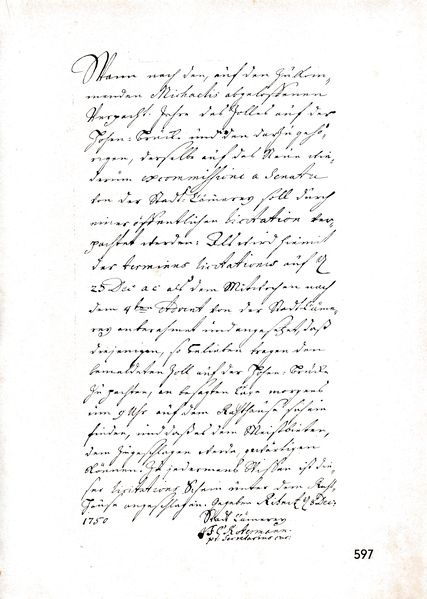 Wann nach den, auf den Zukom-
menden Michaelis abgeloffenen
Verpacht: Jahre des Zolles auf der
Hohen-Brücke und den darzu gehö-
rigen, derselbe auf das Neue wie,
derum ex commissione a Senatu
von der Stadt-Cämerey soll durch
einer öffentlichen licitation ver-
pachtet werden: Als wird hiemit
der terminus licitationis auf
23 Dec a c als dem Mittwochen nach
dem 4ten Advent von der Stadt-Cäme-
rey anberahmt und angesetzet, daß
diejenigen, so Belieben tragen den
bemeldeten Zoll auf der Hohen-Brücke
zu pachten, an besagten Tage morgens
um 9 Uhr auf dem Rathhause sich ein
finden, und daß es dem Meistbieten,
dem zugeschlagen werde, gewärtigen
können. Zu jedermans Wißen ist die,
ser licitations Schein unter dem Rath,
hause angeschlagen. Gegeben Dec:
1750
Stadt Cämerey

Secretarius
597